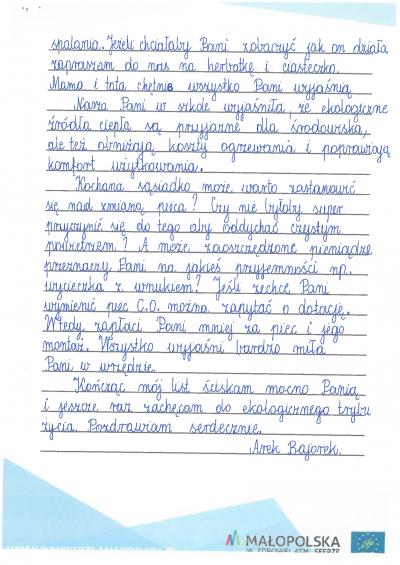 spalania. Jeżeli chciałaby Pani zobaczyć jak on działa
zapraszam do nas na herbatkę i ciasteczka.
Mama i tata chętnie wszystko Pani wyjaśnią
Nasza Pani w szkole wyjaśniła, że ekologiczne
źródła ciepła są przyjazne dla środowiska,
ale też obniżają koszty ogrzewania i poprawiają
komfort użytkowania.
Kochana sąsiadko może warto zastanowić
się nad zmianą pieca? Czy nie byłoby super
przyczynić się do tego aby oddychać czystym
powietrzem? A może zaoszczędzone pieniądze
przeznaczy Pani na jakieś przyjemności np.
wycieczka z wnukiem? Jeśli zechce Pani
wymienić piec C.O. można zapytać o dotację.
Wtedy zapłaci Pani mniej za piec i jego
montaż. Wszystko wyjaśni bardzo miła
Pani w urzędzie.
Kończąc mój list ściskam mocno Panią
i jeszcze raz zachęcam do ekologicznego trybu
życia. Pozdrawiam serdecznie.
Arek Bajorek.
MAŁOPOLSKA
W ZDROWEJ ATMOSFERZE